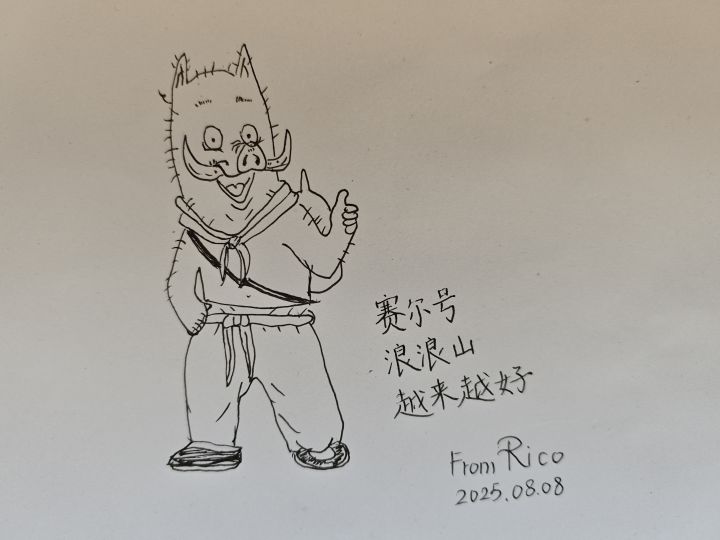 赛尔号
浪浪山
越来越好
From Rico
2025.08.08